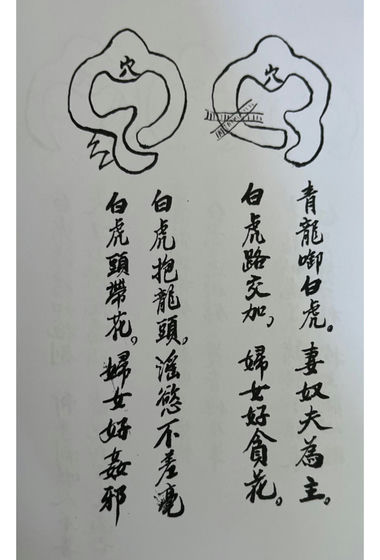 穴
青龍啣白虎。妻奴夫為主。
白虎路交加，婦女好貪花。
穴
白虎抱龍頭，滛慾不差
白虎頭帶花。婦女好姦邪